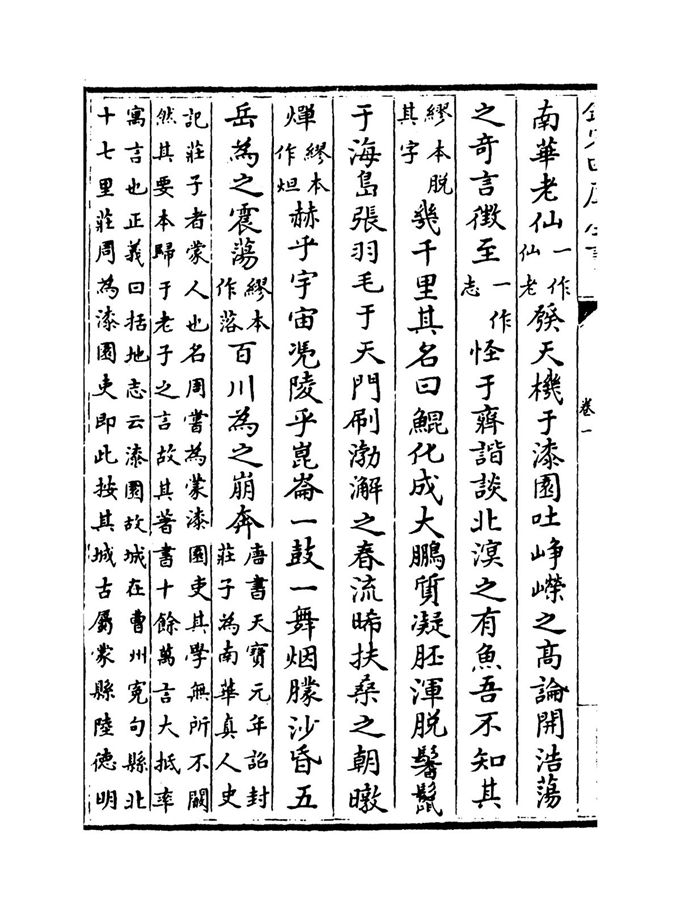 卷一
南華老仙一作仙老發天機于漆園吐崢嶸之高論開浩蕩
之奇言徵至一作志怪于齊諧談北溟之有魚吾不知其
繆本脱其字幾千里其名曰鯤化成大鵬質凝胚渾脱鬐鬛
于海島張羽毛于天門刷渤澥之春流晞扶桑之朝暾
燀繆本作烜赫乎宇宙凭陵乎崑崙一鼓一舞烟朦沙昏五
岳為之震蕩繆本作落百川為之崩奔唐書天寶元年詔封莊子為南華真人史
記莊子者蒙人也名周嘗為蒙漆園吏其學無所不闚
然其要本歸于老子之言故其著書十餘萬言大抵率
寓言也正義曰括地志云漆園故城在曹州寃句縣北
十七里莊周為漆園吏即此按其城古屬蒙縣陸德明